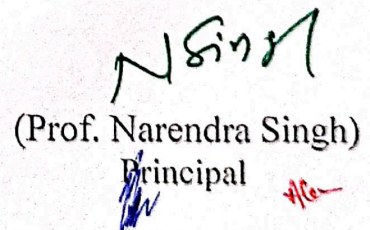 N Singh
(Prof. Narendra Singh)
Principal